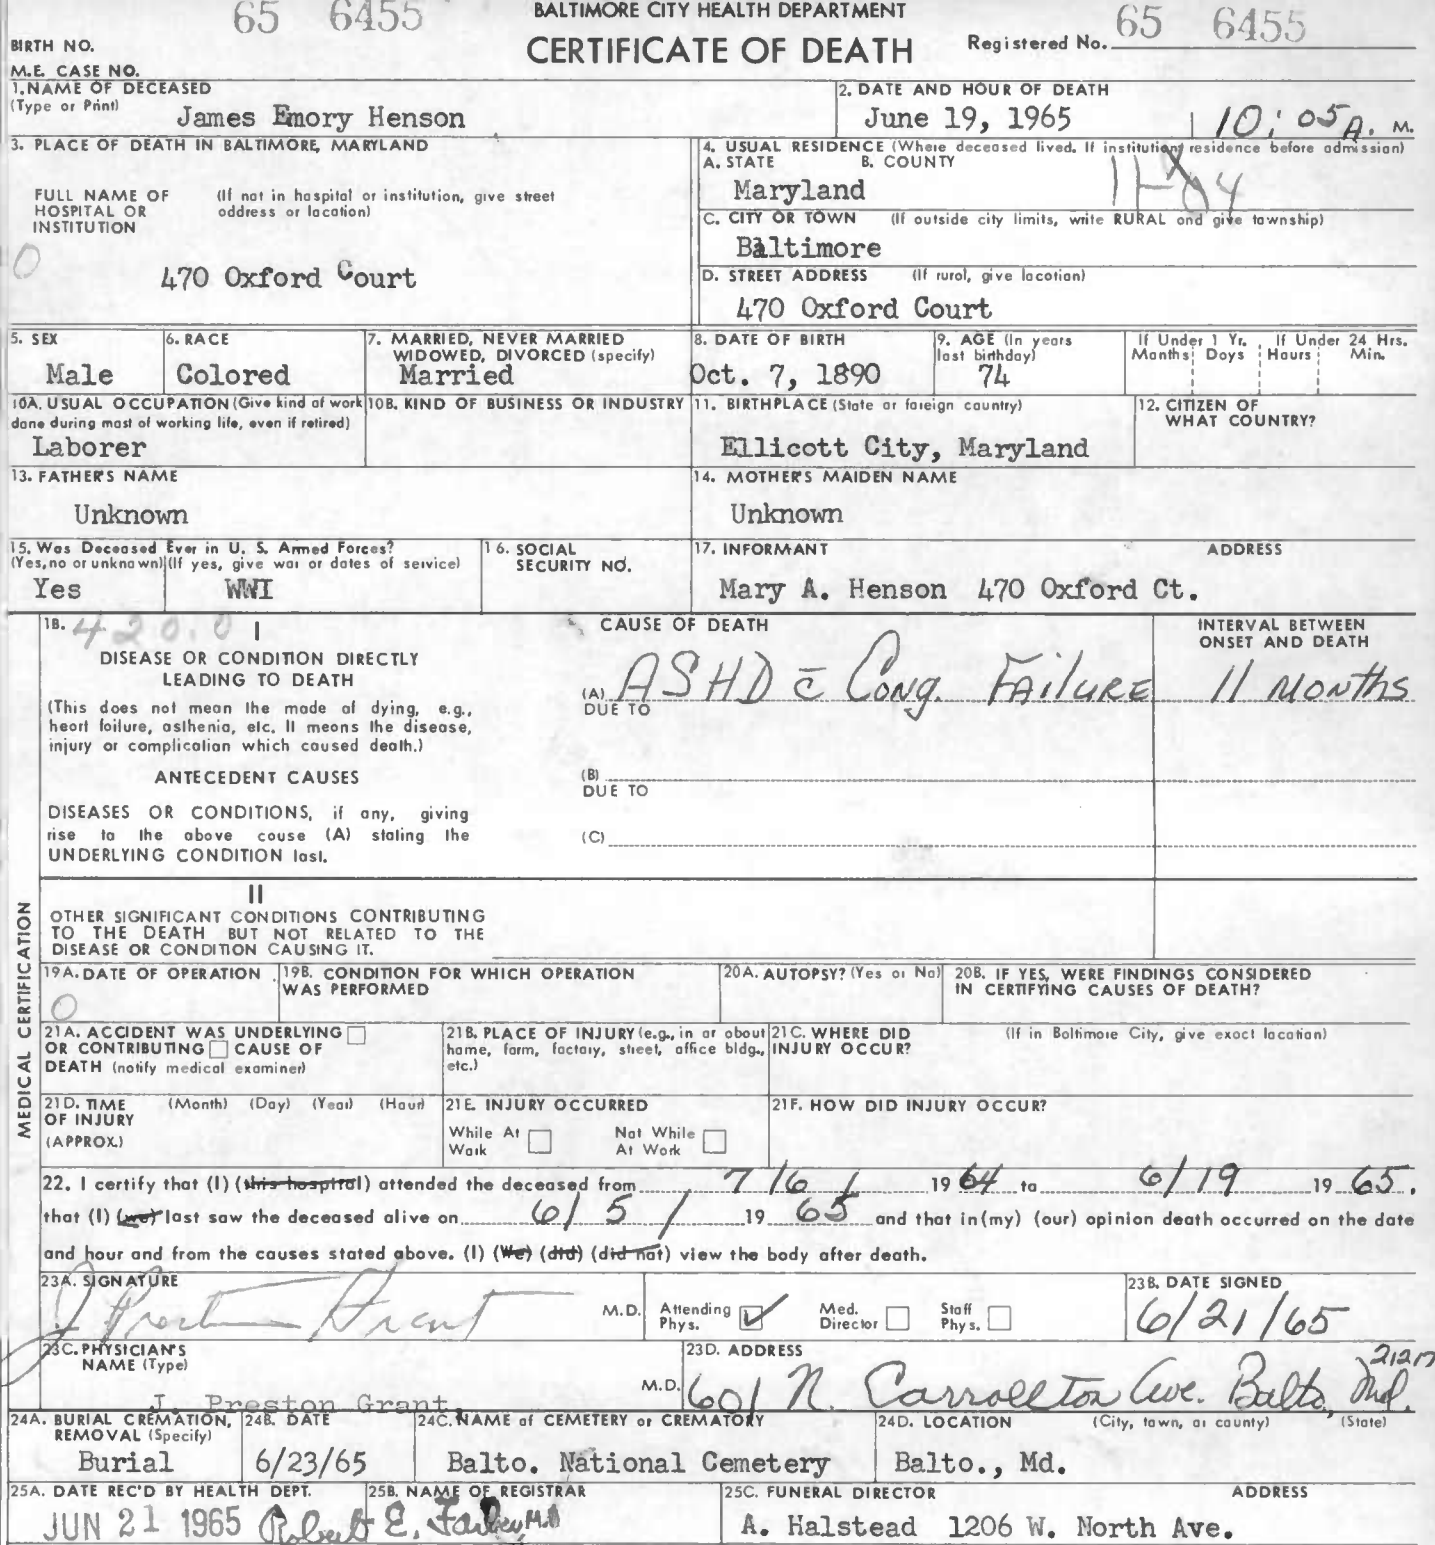 65 6455
BALTIMORE CITY HEALTH DEPARTMENT
65 6455
BIRTH NO.
CERTIFICATE OF DEATH
Registered No.
M.E. CASE NO.
1. NAME OF DECEASED
(Type or Print)
James Emory Henson
2. DATE AND HOUR OF DEATH
June 19, 1965 10:05 A. M.
3. PLACE OF DEATH IN BALTIMORE, MARYLAND
FULL NAME OF HOSPITAL OR INSTITUTION
(If not in hospital or institution, give street address or location)
0
470 Oxford Court
4. USUAL RESIDENCE (Where deceased lived. If institution, residence before admission)
A. STATE B. COUNTY
Maryland
C. CITY OR TOWN (If outside city limits, write RURAL and give township)
Baltimore
D. STREET ADDRESS (If rural, give location)
470 Oxford Court
5. SEX
Male
6. RACE
Colored
7. MARRIED, NEVER MARRIED
WIDOWED, DIVORCED (specify)
Married
8. DATE OF BIRTH
Oct. 7, 1890
9. AGE (In years
last birthday)
74
If Under 1 Yr. If Under 24 Hrs.
Months Days Hours Min.
10A. USUAL OCCUPATION (Give kind of work
done during most of working life, even if retired)
Laborer
10B. KIND OF BUSINESS OR INDUSTRY
11. BIRTHPLACE (State or foreign country)
Ellicott City, Maryland
12. CITIZEN OF
WHAT COUNTRY?
13. FATHER'S NAME
Unknown
14. MOTHER'S MAIDEN NAME
Unknown
15. Was Deceased Ever in U. S. Armed Forces?
(Yes, no or unknown) (If yes, give war or dates of service)
Yes WWI
16. SOCIAL
SECURITY NO.
17. INFORMANT ADDRESS
Mary A. Henson 470 Oxford Ct.
18. 420.0 I
DISEASE OR CONDITION DIRECTLY
LEADING TO DEATH
(This does not mean the mode of dying, e.g.,
heart failure, asthenia, etc. It means the disease,
injury or complication which caused death.)
ANTECEDENT CAUSES
DISEASES OR CONDITIONS, if any, giving
rise to the above cause (A) stating the
UNDERLYING CONDITION last.
CAUSE OF DEATH
(A) ASHD c̄ Cong. FAILURE
DUE TO
(B)
DUE TO
(C)
INTERVAL BETWEEN
ONSET AND DEATH
11 MONTHS
II
OTHER SIGNIFICANT CONDITIONS CONTRIBUTING
TO THE DEATH BUT NOT RELATED TO THE
DISEASE OR CONDITION CAUSING IT.
MEDICAL CERTIFICATION
19A. DATE OF OPERATION
0
19B. CONDITION FOR WHICH OPERATION
WAS PERFORMED
20A. AUTOPSY? (Yes or No)
20B. IF YES, WERE FINDINGS CONSIDERED
IN CERTIFYING CAUSES OF DEATH?
21A. ACCIDENT WAS UNDERLYING
OR CONTRIBUTING CAUSE OF
DEATH (notify medical examiner)
21B. PLACE OF INJURY (e.g., in or about
home, farm, factory, street, office bldg.,
etc.)
21C. WHERE DID (If in Baltimore City, give exact location)
INJURY OCCUR?
21D. TIME (Month) (Day) (Year) (Hour)
OF INJURY
(APPROX.)
21E. INJURY OCCURRED
While At Work Not While At Work
21F. HOW DID INJURY OCCUR?
22. I certify that (I) (this hospital) attended the deceased from 7/6/ 1964 to 6/19 1965.
that (I) (we) last saw the deceased alive on 6/5/ 1965 and that in (my) (our) opinion death occurred on the date
and hour and from the causes stated above. (I) (We) (did) (did not) view the body after death.
23A. SIGNATURE
J Preston Grant M.D.
Attending Phys. Med. Director Staff Phys.
23B. DATE SIGNED
6/21/65
23C. PHYSICIAN'S
NAME (Type)
J. Preston Grant M.D.
23D. ADDRESS
601 N. Carrollton Ave. Balto, Md. 21217
24A. BURIAL CREMATION,
REMOVAL (Specify)
Burial
24B. DATE
6/23/65
24C. NAME of CEMETERY or CREMATORY
Balto. National Cemetery
24D. LOCATION (City, town, or county) (State)
Balto., Md.
25A. DATE REC'D BY HEALTH DEPT.
JUN 21 1965
25B. NAME OF REGISTRAR
Robert E. Farber, M.D
25C. FUNERAL DIRECTOR ADDRESS
A. Halstead 1206 W. North Ave.